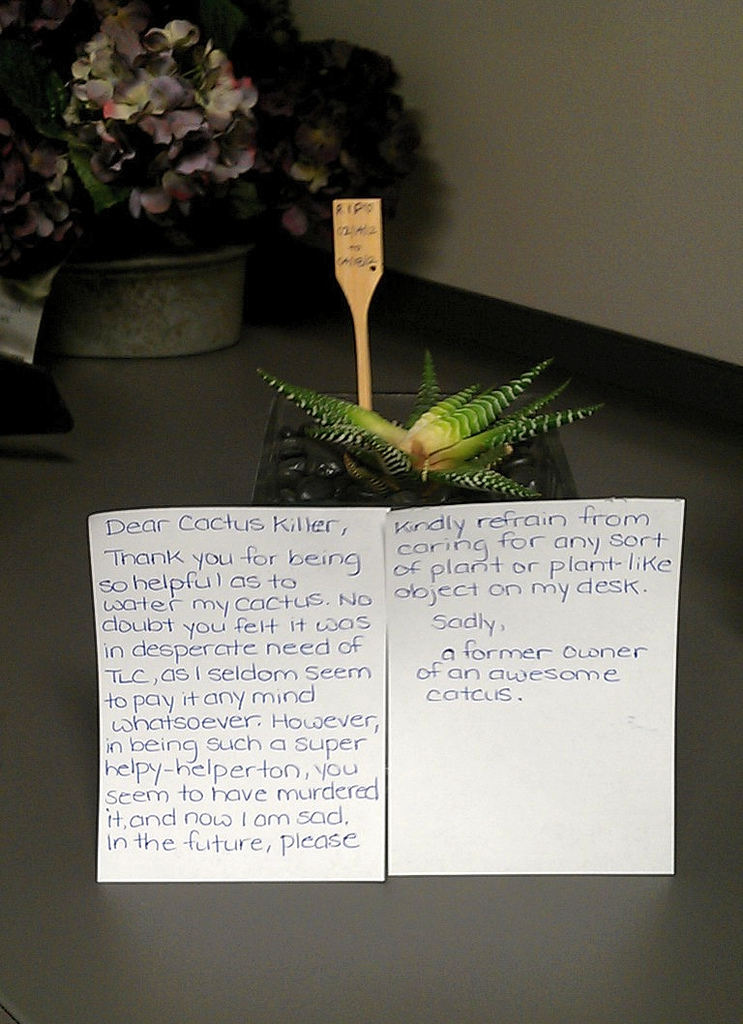 R I P
02/14/12
TO
04/18/12
Dear Cactus Killer,
Thank you for being
so helpful as to
water my cactus. No
doubt you felt it was
in desperate need of
TLC, as I seldom seem
to pay it any mind
whatsoever. However,
in being such a super
helpy-helperton, you
seem to have murdered
it, and now I am sad.
In the future, please
Kindly refrain from
caring for any sort
of plant or plant-like
object on my desk.
Sadly,
a former owner
of an awesome
catcus.